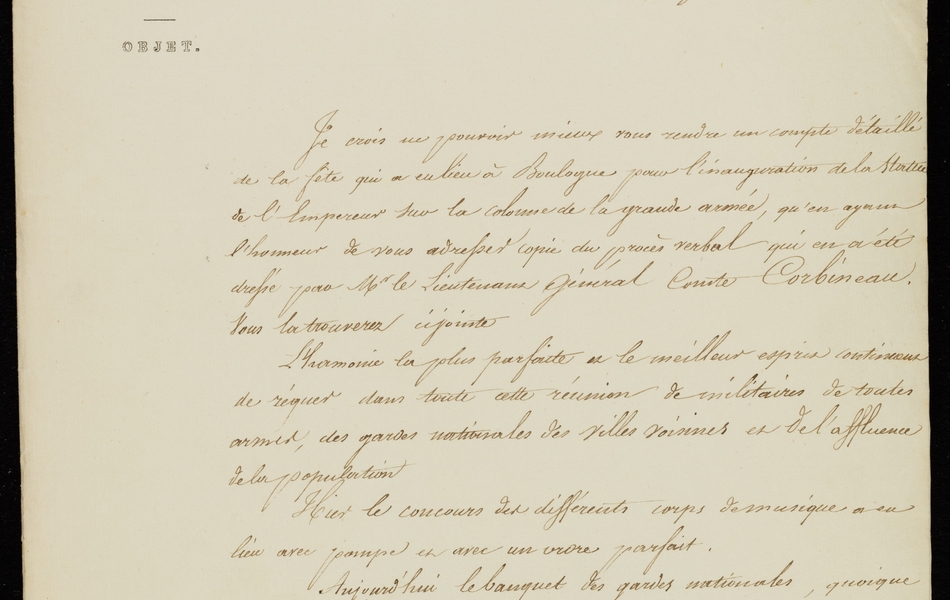 OBJET.
Je crois ne pouvoir mieux vous rendre un compte détaillé
de la fête qui a eu lieu à Boulogne pour l'inauguration de la Statue
de l'Empereur sur la colonne de la grande armée, qu'en ayant
l'honneur de vous adresser copie du procès verbal qui en a été
dressé par Mr le Lieutenant Général Comte Corbineau.
Vous la trouverez ci jointe
L'harmonie la plus parfaite et le meilleur esprit continuent
de régner dans toute cette réunion de militaires de toutes
armes, des gardes nationales des villes voisines et de l'affluence
de la population
Hier le concours des différents corps de musique a eu
lieu avec pompe et avec un ordre parfait.
Aujourd'hui le banquet des gardes nationales, quoique